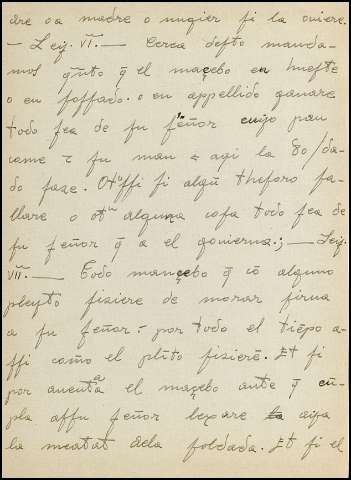 dre o a madre o mugier si la oviere.
— Leiȷ. VI. — Cerca desto manda-
mos q̃nto q̃ el maçebo en hueste
o en fossado. o en appellido ganare
todo sea de su señor cuyo pan
come ꞇ su man a aqi la so/da-
do faze. Otossi si algũ thesoro fa-
llare o otª alguna cosa todo sea de
su señor q̃ a el govierna.; — Leiȷ.
VII. — Todo mançebo q̃ cõ alguno
pleyto fiziere de morar sirva
a su señor. por todo el tiẽpo a-
ssi como el plito fizierẽ. Et si
por aventª el maçebo ante q̃ cũ-
pla assu señor lexare aya
la meatat dela soldada. Et si el